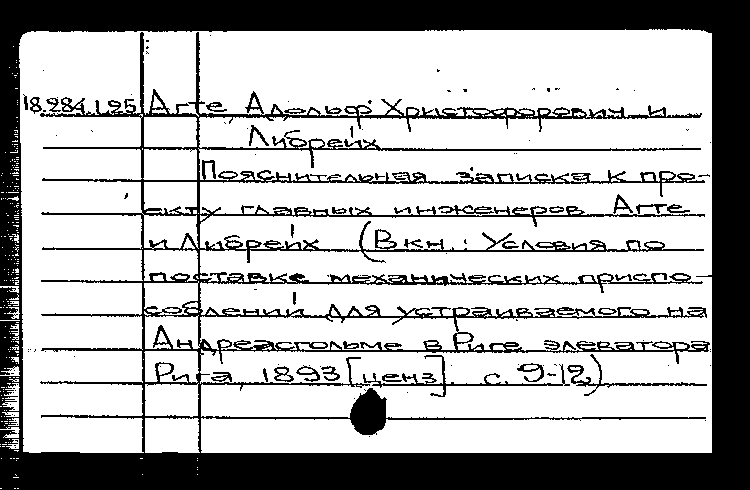 18.284.1.25 Агте Адольф Христофорович и
Либрейх
Пояснительная записка к про-
екту главных инженеров Агте
и Либрейх (В кн.: Условия по
поставке механических приспо-
соблений для устраиваемого на
Андреасгольме в Риге элеватора
Рига, 1893 [ценз]. с. 9-12)